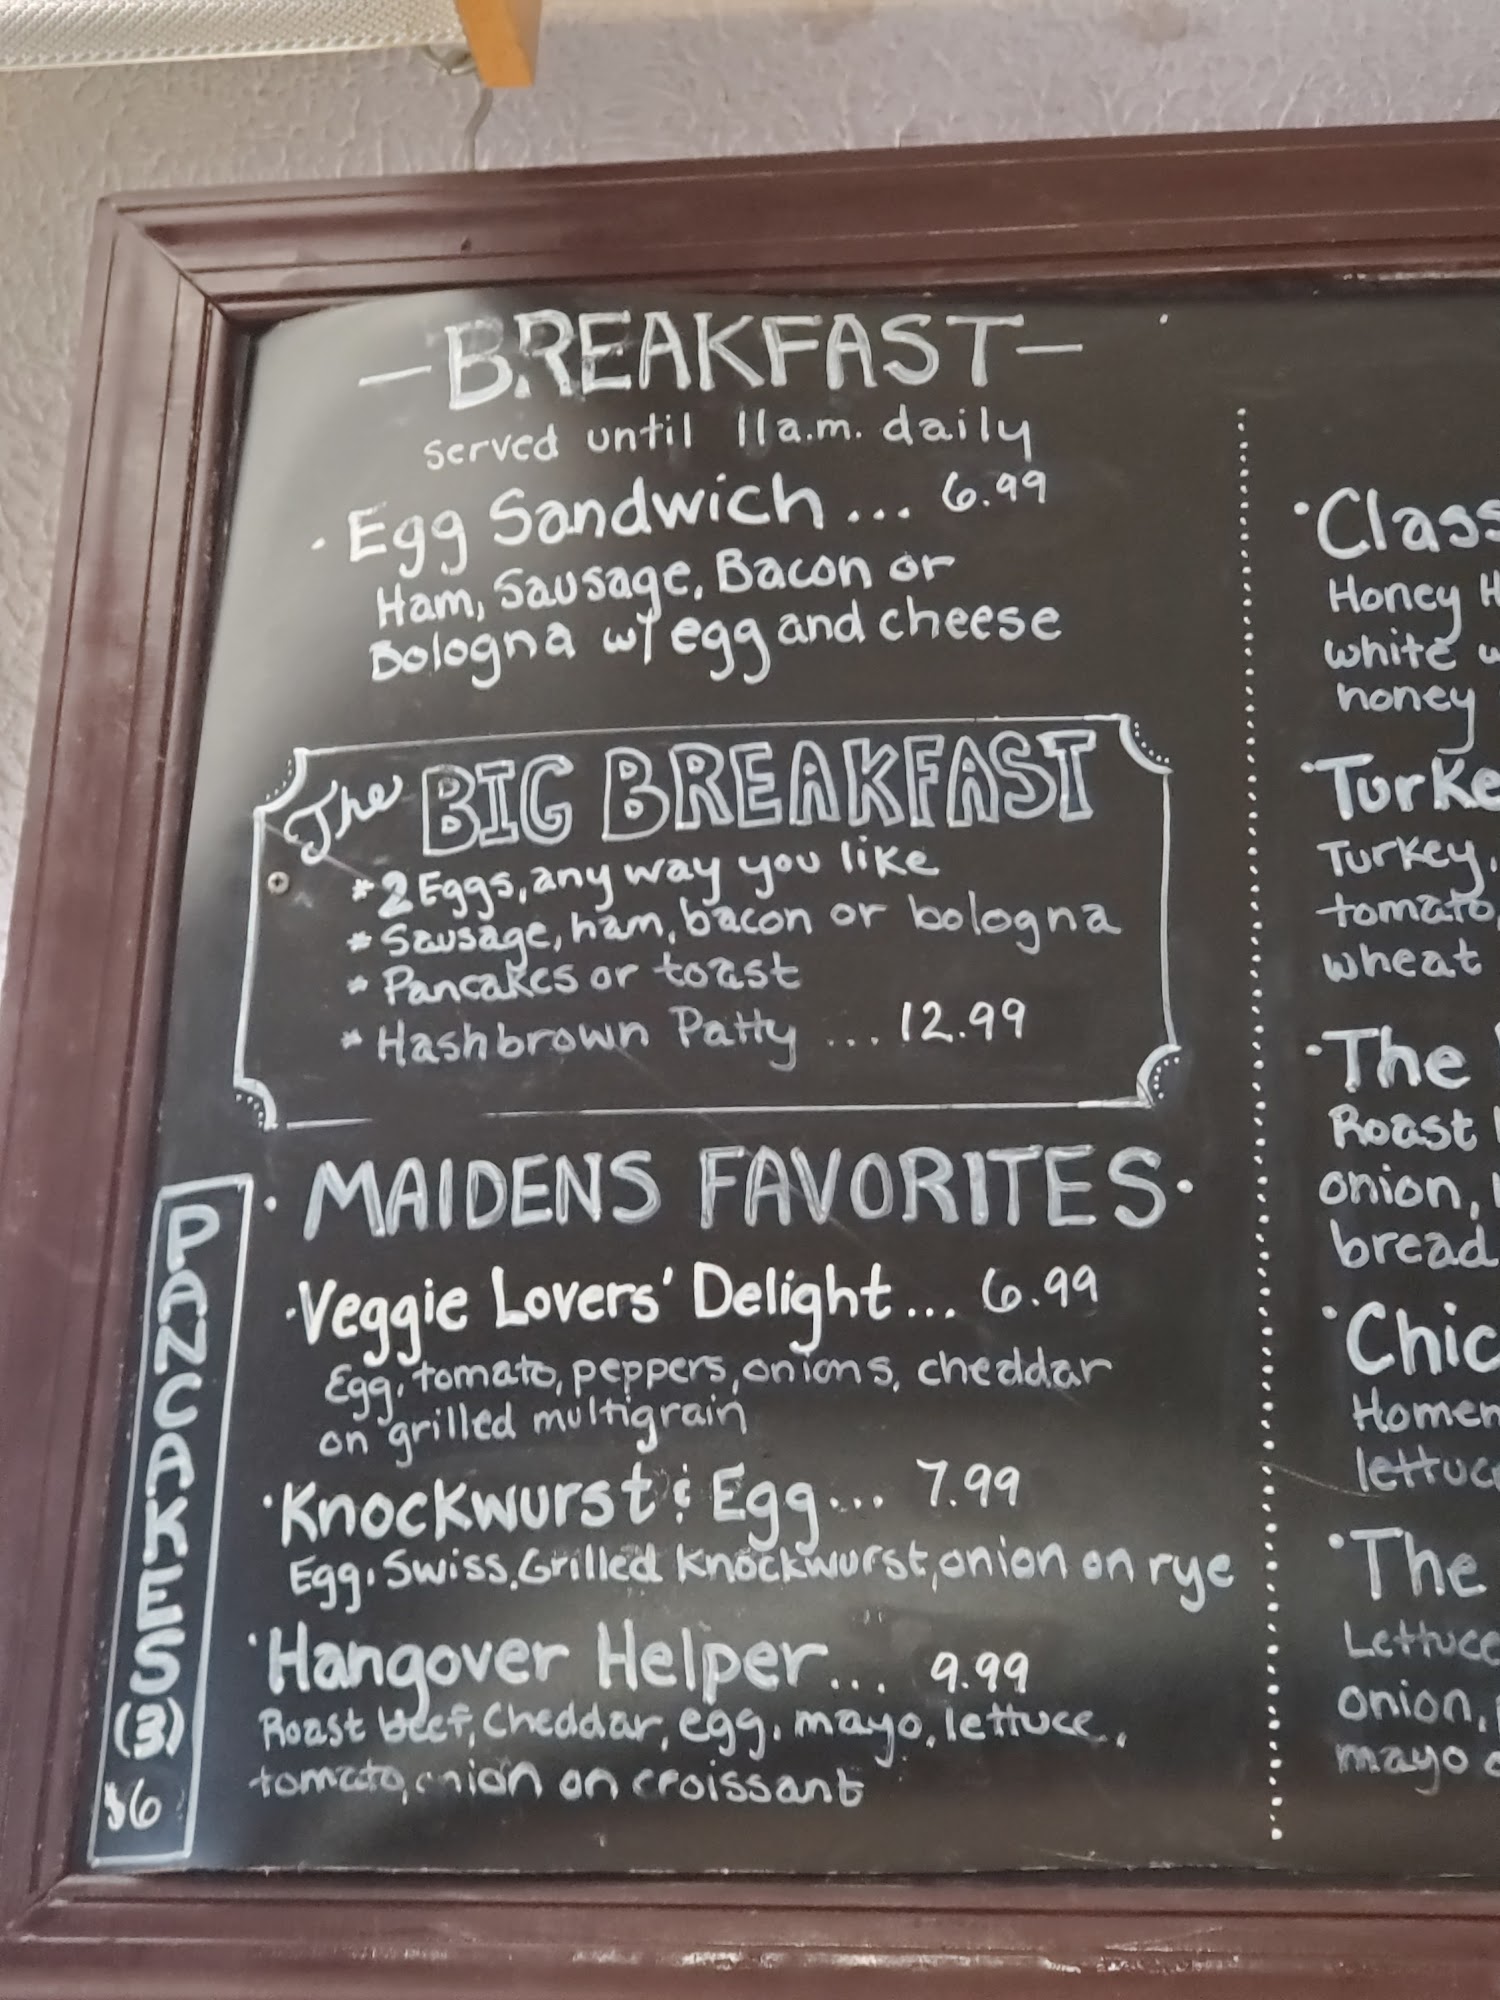 —BREAKFAST—
served until 11a.m. daily
· Egg Sandwich ... 6.99
Ham, Sausage, Bacon or
Bologna w/ egg and cheese
The BIG BREAKFAST
* 2 Eggs, any way you like
* Sausage, ham, bacon or bologna
* Pancakes or toast
* Hashbrown Patty ... 12.99
· MAIDENS FAVORITES ·
· Veggie Lovers' Delight ... 6.99
Egg, tomato, peppers, onions, cheddar
on grilled multigrain
· Knockwurst & Egg... 7.99
Egg, Swiss, Grilled Knockwurst, onion on rye
· Hangover Helper... 9.99
Roast beef, Cheddar, egg, mayo, lettuce,
tomato, onion on croissant
PANCAKES
(3)
$6
· Class
Honey H
white w
honey
· Turke
Turkey,
tomato,
wheat
· The
Roast
onion,
bread
· Chic
Homem
lettuc
· The
Lettuce
onion,
mayo